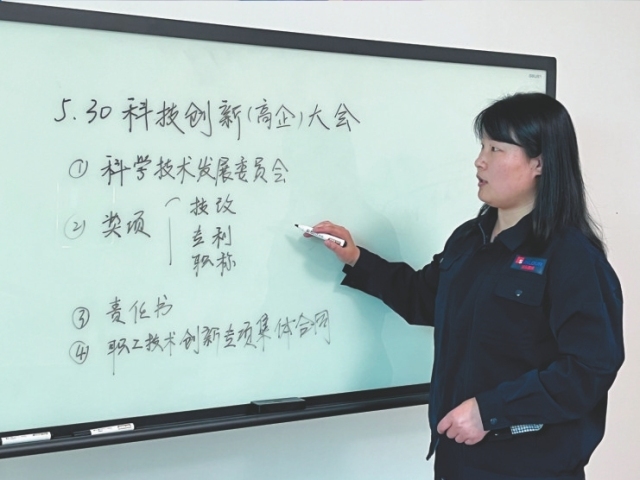 5.30科技创新(高企)大会
① 科学技术发展委员会
② 奖项
技改
专利
职称
③ 责任书
④ 职工技术创新专项集体合同